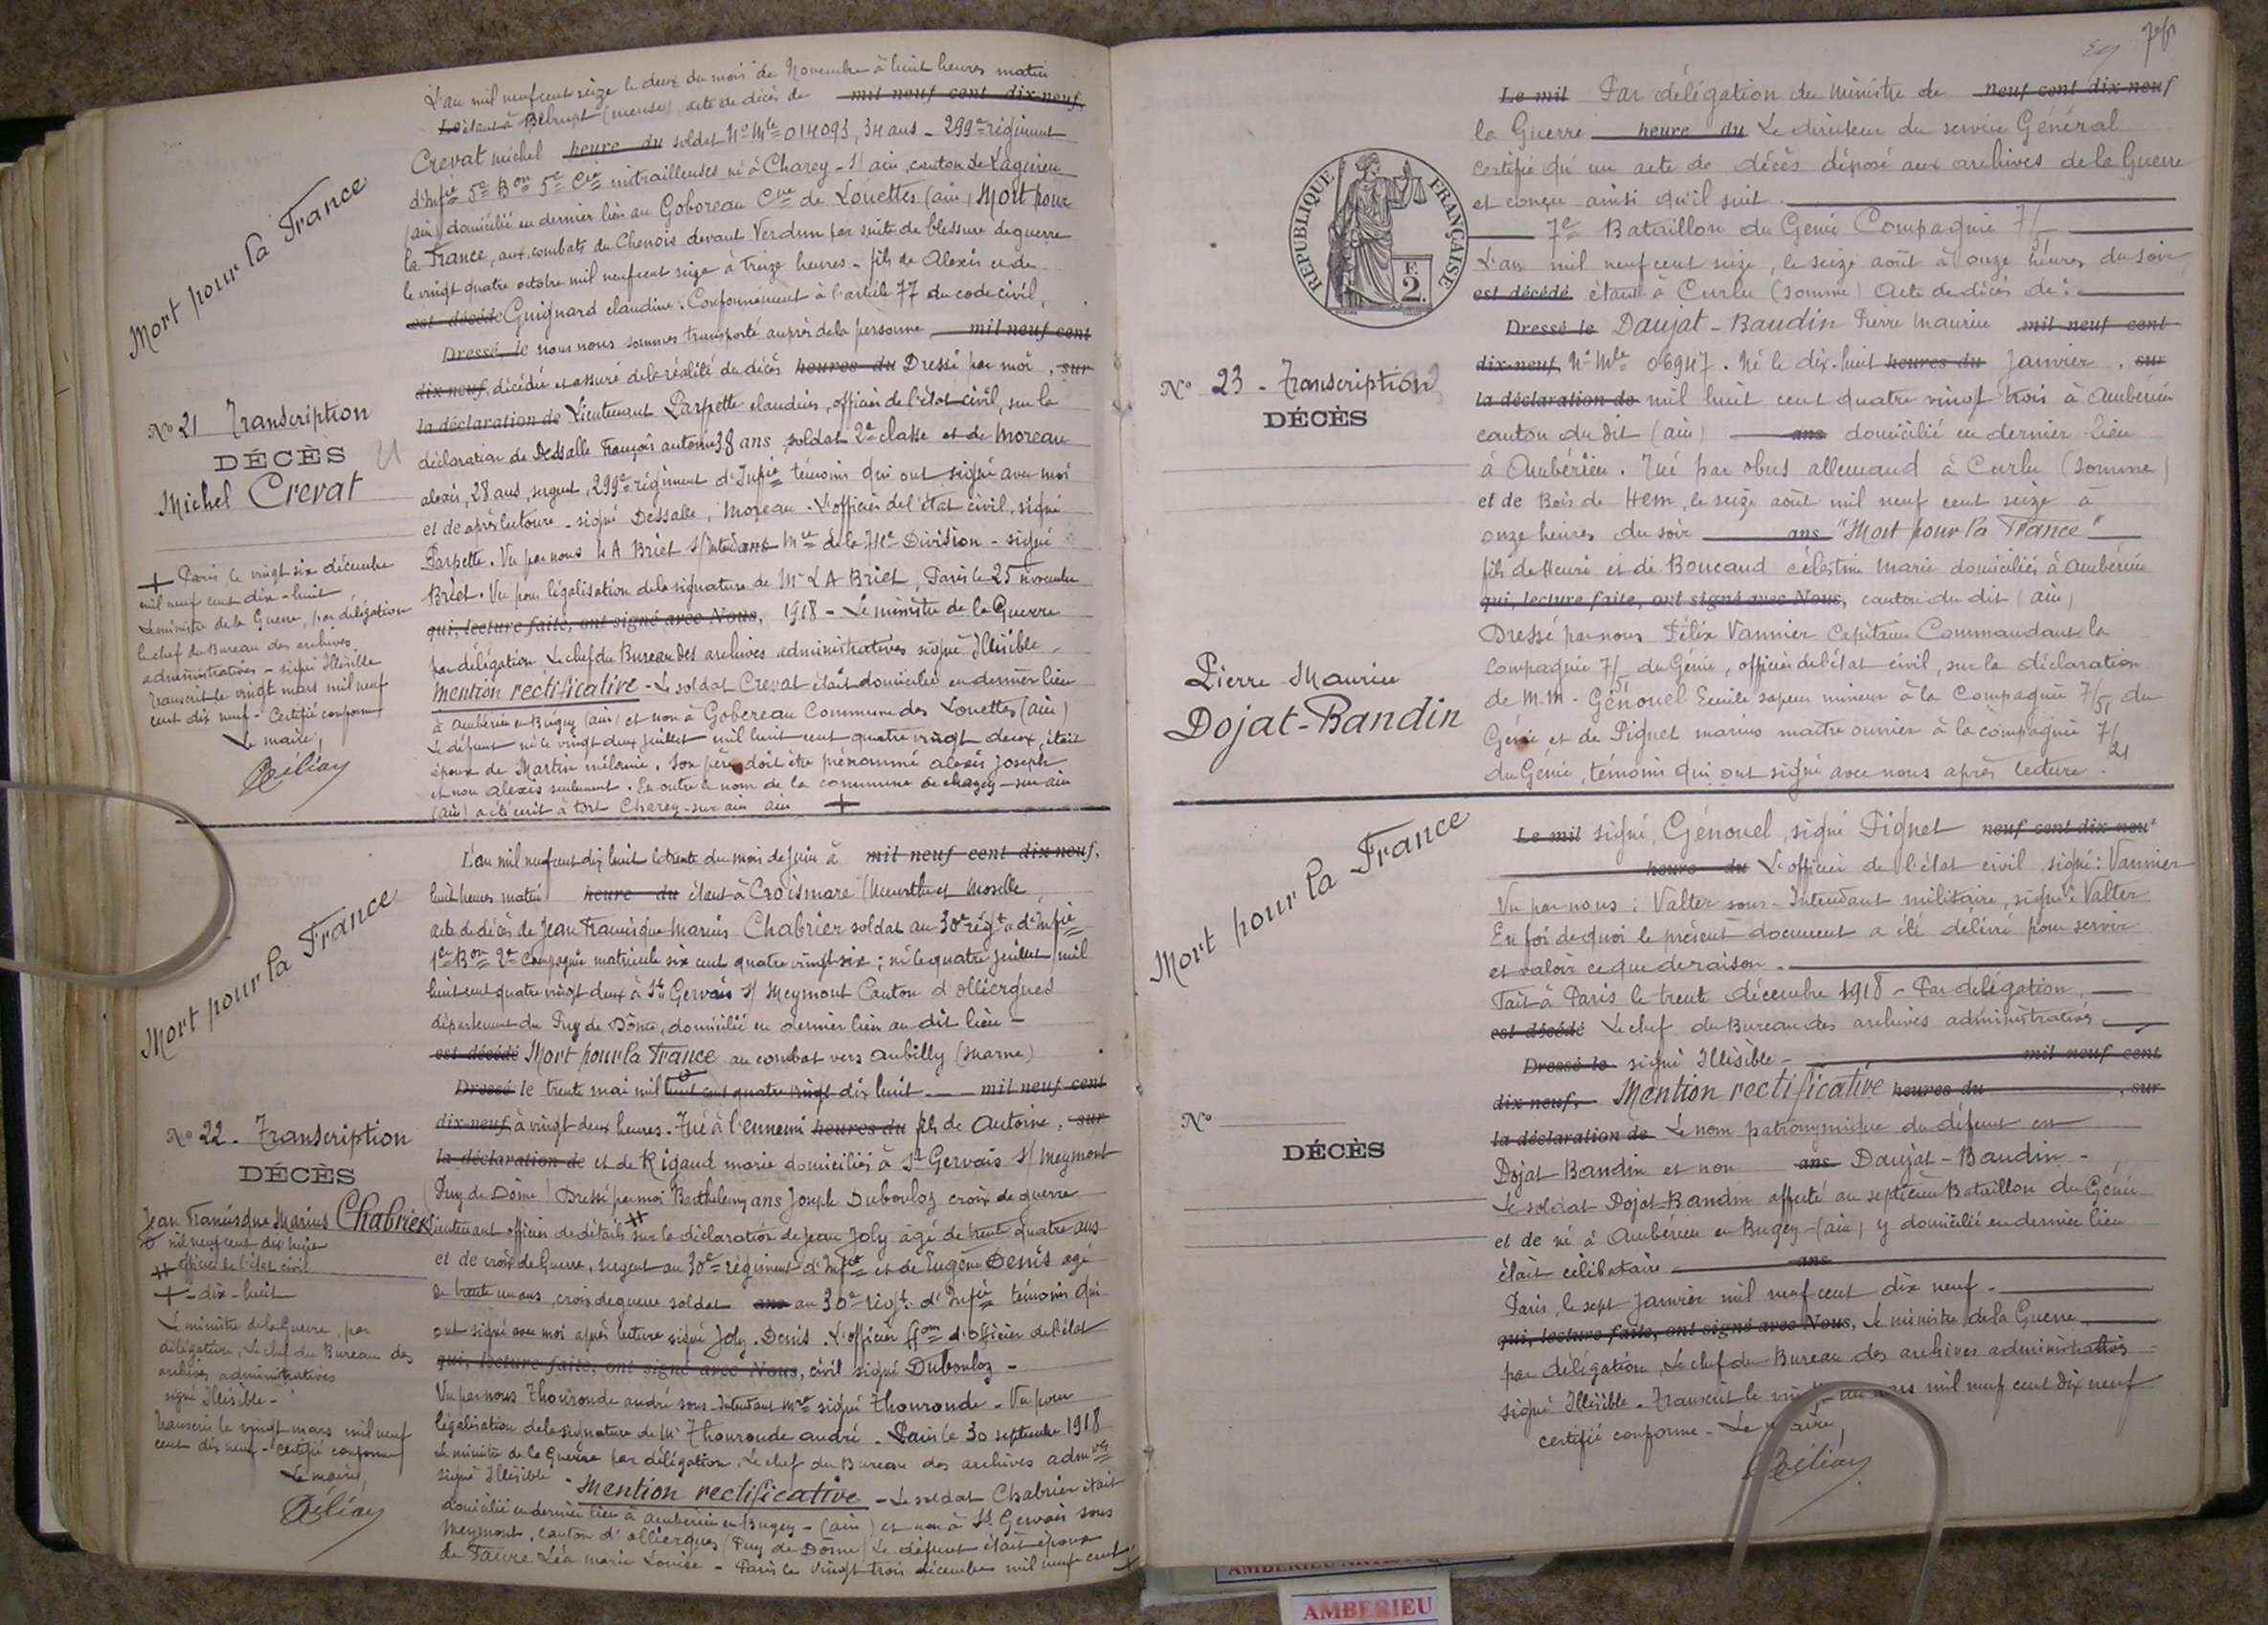 Mort pour la France
N° 21 Transcription
DÉCÈS
Michel Crevat
+ Paris, le vingt six décembre
mil neuf cent dix-huit
Le ministre de la Guerre, par délégation
le chef du Bureau des archives
administratives - signé Illisible
Transcrit le vingt mars mil neuf
cent dix neuf - Certifié conforme
Le maire,
L'an mil neuf cent seize le deux du mois de Novembre à huit heures matin
étant à Belrupt (meuse) acte de décès de mil neuf cent dix-neuf,
Crevat michel heure du soldat N° Mle 014093, 34 ans - 299e régiment
d'Infie 5e Bon 5e Cie mitrailleuses né à Charey-s/ain, canton de Lagnieu
(ain) domicilié en dernier lieu au Goboreau Cne de Louettes (ain) Mort pour
la France, aux combats du Chenois devant Verdun par suite de blessure de guerre
le vingt quatre octobre mil neuf cent seize à treize heures - fils de Alexis et de
est décédé Guignard claudine. Conformément à l'article 77 du code civil,
Dressé le nous nous sommes transporté auprès de la personne mil neuf cent
dix-neuf, décédée et assuré de la réalité du décès heures du Dressé par moi, sur
la déclaration de Lieutenant Parpette claudius, officier de l'état civil, sur la
déclaration de Dessalle François antoine 38 ans, soldat 2e classe et de Moreau
alexis, 28 ans, sergent, 299e régiment d'Infie témoins qui ont signé avec moi
et de après lecture - signé Dessalle, Moreau. L'officier de l'état civil, signé
Parpette. Vu par nous L A Briet s/Intendant Mre de la 74e Division - signé
Briet. Vu pour légalisation de la signature de Mr L A Briet, Paris le 25 novembre
qui, lecture faite, ont signé avec Nous, 1918 - Le ministre de la Guerre
par délégation, Le chef du Bureau des archives administratives signé Illisible -
Mention rectificative - Le soldat Crevat était domicilié en dernier lieu
à Ambérieu en Bugey (ain) et non à Gobereau Commune des Louettes (ain)
Le défunt né le vingt deux juillet mil huit cent quatre vingt deux, était
époux de Martin mélanie. Son père doit être prénommé alexis Joseph
et non alexis seulement. En outre le nom de la commune de chazey-sur-ain
(ain) a été écrit à tort Charey-sur-ain ain +
Mort pour la France
N° 22. Transcription
DÉCÈS
Jean Francisque Marius Chabrier
mil neuf cent dix huit
officier de l'état civil
+ - dix-huit
Le ministre de la Guerre, par
délégation, Le chef du Bureau des
archives administratives
signé Illisible -
Transcrit le vingt mars mil neuf
cent dix neuf - certifié conforme
Le maire,
L'an mil neuf cent dix huit le trente du mois de juin à mil neuf cent dix-neuf,
huit heures matin heure du étant à Croismare (Meurthe et Moselle
acte de décès de Jean Francisque Marius Chabrier soldat au 30e régt d'Infie
1er Bon 2e Compagnie matricule six cent quatre vingt six; né le quatre juillet mil
huit cent quatre vingt deux à St Gervais s/ Meymont Canton d'ollièrgues
département du Puy de Dôme, domicilié en dernier lieu au dit lieu -
est décédé Mort pour la France au combat vers aubilly (Marne)
Dressé le trente mai mil huit cent quatre vingt dix huit - mil neuf cent
dix-neuf, à vingt deux heures. Tué à l'ennemi heures du fils de Antoine, sur
la déclaration de et de Rigaud marie domiciliés à St Gervais s/ Meymont
(Puy de Dôme) Dressé par moi Barthelemy ans Joseph Dubouloz croix de guerre
Lieutenant officier de détails sur la déclaration de Jean Joly agé de trente quatre ans
et de croix de Guerre, sergent au 30e régiment d'Infie et de Eugène Denis agé
de trente un ans, croix de guerre soldat ans au 30e régt d'Infie témoins qui
ont signé avec moi après lecture signé Joly. Denis. L'officier d'officier de l'état
qui, lecture faite, ont signé avec Nous, civil signé Dubouloz -
Vu par nous Thouroude andré sous-Intendant Mre signé Thouroude - Vu pour
légalisation de la signature de Mr Thouroude andré. Paris le 30 septembre 1918
Le ministre de la Guerre par délégation, Le chef du Bureau des archives admves
signé Illisible - Mention rectificative - Le soldat Chabrier était
domicilié en dernier lieu à ambérieu en Bugey - (ain) et non à St Gervais sous
Meymont, canton d'ollièrgues (Puy de Dôme) Le défunt était époux
de Faure Léa marie Louise - Paris le vingt trois décembre mil neuf cent +
RÉPUBLIQUE FRANÇAISE
F. 2.
N° 23 - Transcription
DÉCÈS
Pierre Maurice
Dojat-Bandin
Le mil Par délégation du Ministre de neuf cent dix-neuf
la Guerre heure du Le directeur du service Général
certifie qu'un acte de décès déposé aux archives de la Guerre
est conçu ainsi qu'il suit.
7e Bataillon du Génie Compagnie 7/
L'an mil neuf cent seize, le seize août à onze heures du soir
est décédé étant à Curlu (Somme) Acte de décès de:
Dressé le Daujat-Baudin Pierre Maurice mil neuf cent
dix-neuf, N° Mle 06947. Né le dix-huit heures du janvier, sur
la déclaration de mil huit cent quatre vingt trois à Ambérieu
canton du dit (ain) ans domicilié en dernier lieu
à Ambérieu. Tué par obus allemand à Curlu (Somme)
et de Bois de Hem, le seize août mil neuf cent seize à
onze heures du soir ans "Mort pour la France"
fils de Henri et de Boucaud célestine Marie domiciliés à Ambérieu
qui, lecture faite, ont signé avec Nous, canton du dit (ain)
Dressé par nous Félix Vannier Capitaine Commandant la
Compagnie 7/5 du Génie, officier de l'état civil, sur la déclaration
de M.M. Génouel Emile sapeur mineur à la Compagnie 7/5, du
Génie et de Pignet marius maître ouvrier à la compagnie 7/21
du Génie, témoins qui ont signé avec nous après lecture.
Mort pour la France
N°
DÉCÈS
Le mil signé, Génouel, signé Pignet neuf cent dix-neuf
heure du L'officier de l'état civil signé: Vannier
Vu par nous: Valter sous-Intendant militaire, signé: Valter
En foi de quoi le présent document a été délivré pour servir
et valoir ce que de raison.
Fait à Paris le trente décembre 1918 - Par délégation,
est décédé Le chef du Bureau des archives administratives
Dressé le signé Illisible - mil neuf cent
dix-neuf, Mention rectificative heures du, sur
la déclaration de Le nom patronymique du défunt est
Dojat-Bandin et non ans Daujat-Baudin -
Le soldat Dojat-Bandin affecté au septième Bataillon du Génie
et de né à Ambérieu en Bugey - (ain) y domicilié en dernier lieu
était célibataire ans
Paris, le sept janvier mil neuf cent dix neuf.
qui, lecture faite, ont signé avec Nous, Le ministre de la Guerre
par délégation, Le chef du Bureau des archives administratives
signé Illisible. Transcrit le mars mil neuf cent dix neuf
certifié conforme - Le maire,
AMBERIEU
AMBERIEU